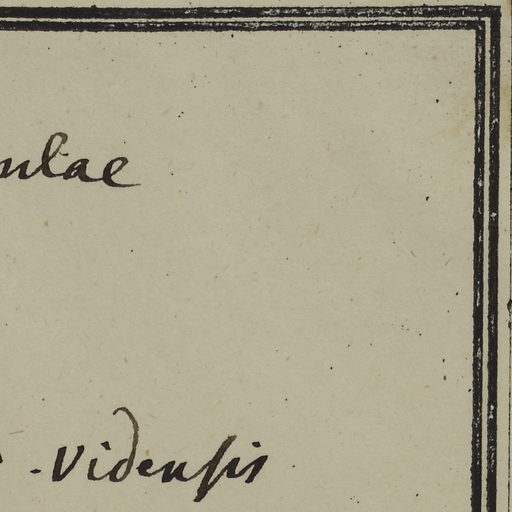 ulae
. Videnſis